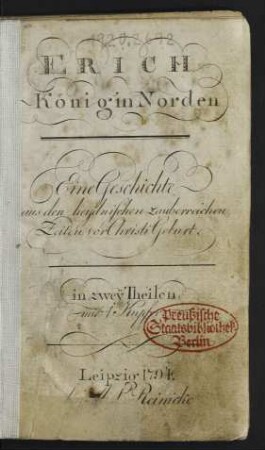 ERICH
König in Norden
Eine Geschichte
aus den heydnischen zauberreichen
Zeiten vor Christi Geburt.
in zwey Theilen.
mit 1 Kupfer
Preußische
Staatsbibliothek
Berlin.
Leipzig 1794.
Reinicke